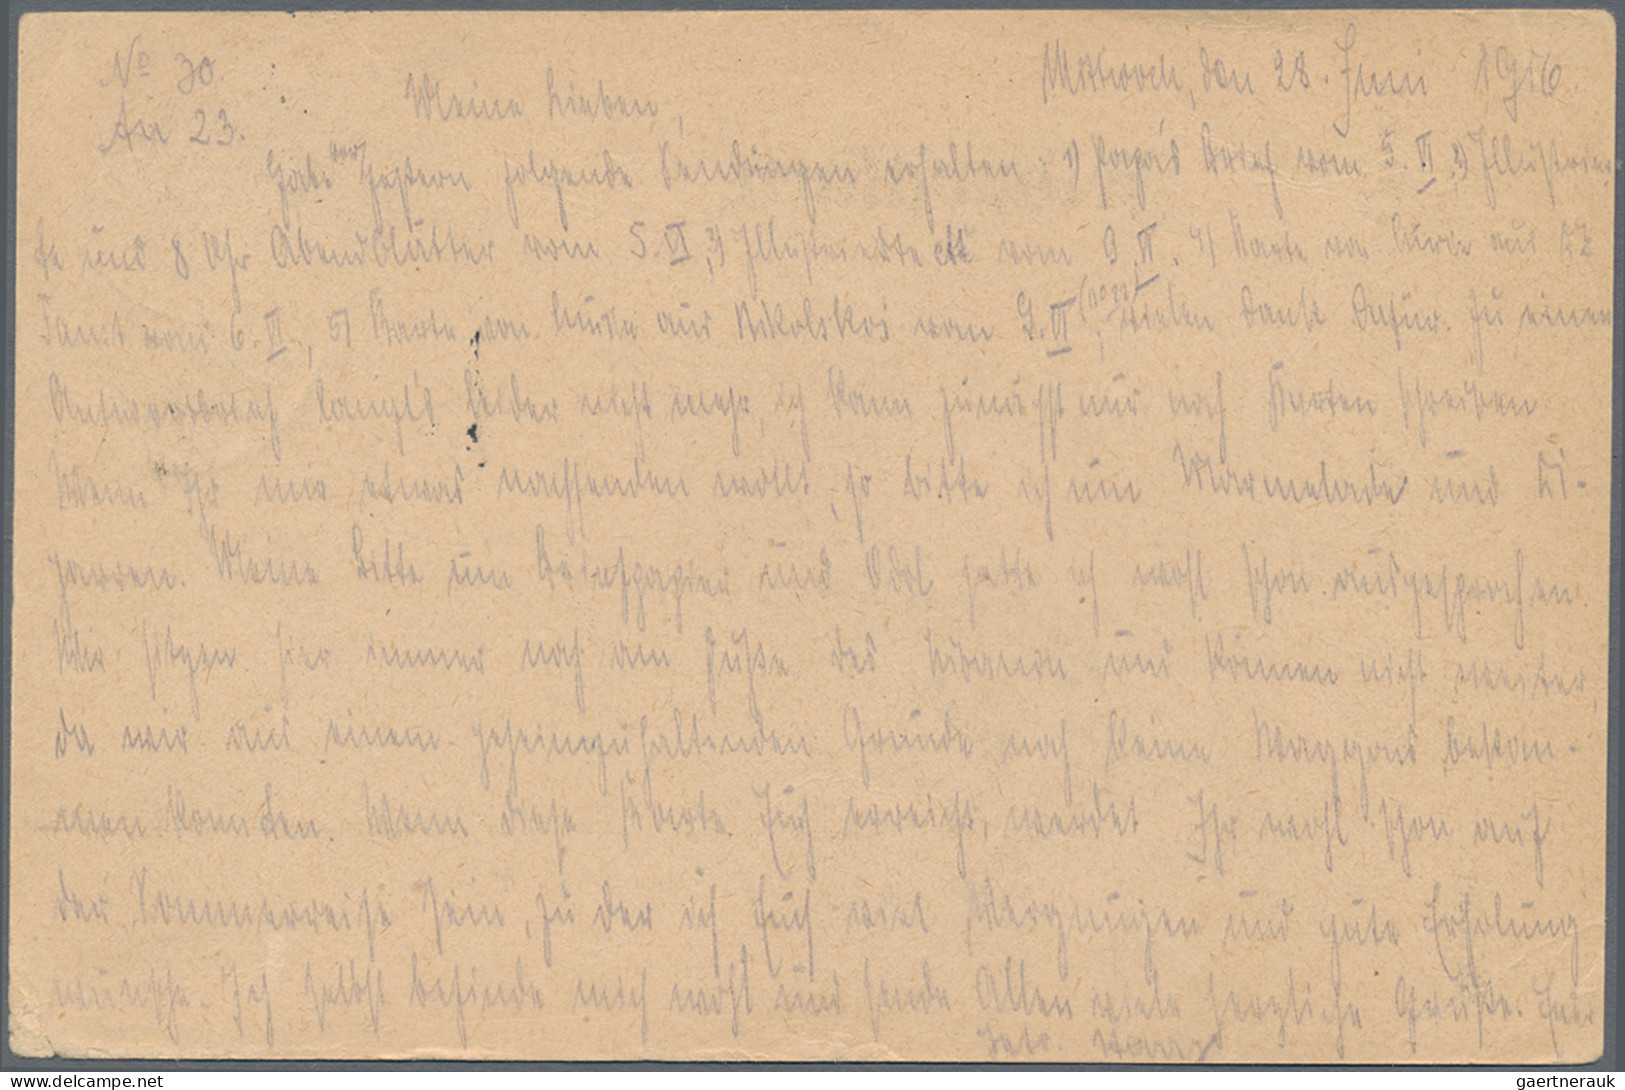 No 30. Mittwoch, den 28. Juni 1916.
An 23. Meine Lieben,
Habe vorgestern folgende Sendungen erhalten: 1) Papas Brief vom 5. VI, 2) Illustrier-
te und 8 Uhr Abendblätter vom 5. VI, 3) Illustrierte etc vom 9. VI. 4) Karte von aus
vom 6. VI, 5) Karte von aus Nikolskoi vom 9. VI (No 22), vielen Dank dafür. Zu einem
Antwortbrief langt's leider nicht mehr, ich kann zunächst nur noch Karten schreiben
Wenn Ihr mir etwas nachsenden wollt, so bitte ich um Marmelade und Zi-
garren. Meine Bitte um Briefpapier und Odol hatte ich wohl schon ausgesprochen.
Wir sitzen hier immer noch am Fuße des Libanon und können nicht weiter,
da wir aus einem geheimzuhaltenden Grunde noch keine Waggons bekom-
men konnten. Wenn diese Karte Euch erreicht, werdet Ihr wohl schon auf
der Sommerreise sein, zu der ich Euch viel Vergnügen und gute Erholung
wünsche. Ich selbst befinde mich wohl und sende Allen viele herzliche Grüße. Euer
gaertnerauk